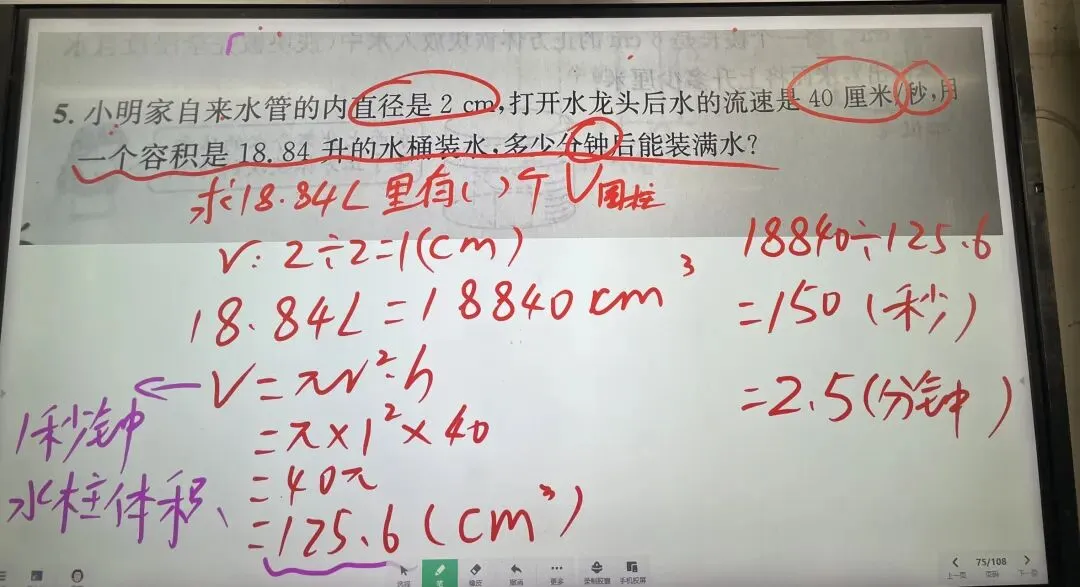 r
5. 小明家自来水管的内直径是 2 cm,打开水龙头后水的流速是 40 厘米/秒,用
一个容积是 18.84 升的水桶装水,多少分钟后能装满水?
求18.84L 里有( )个V圆柱
r: 2÷2=1(cm)
18.84L=18840cm³
V=πr²·h
=π×1²×40
=40π
=125.6(cm³)
1秒钟
水柱体积、
18840÷125.6
=150(秒)
=2.5(分钟)
选择 笔 橡皮 撤消 更多 录制胶囊 手机投屏
75/108
上一页 页码 下一页